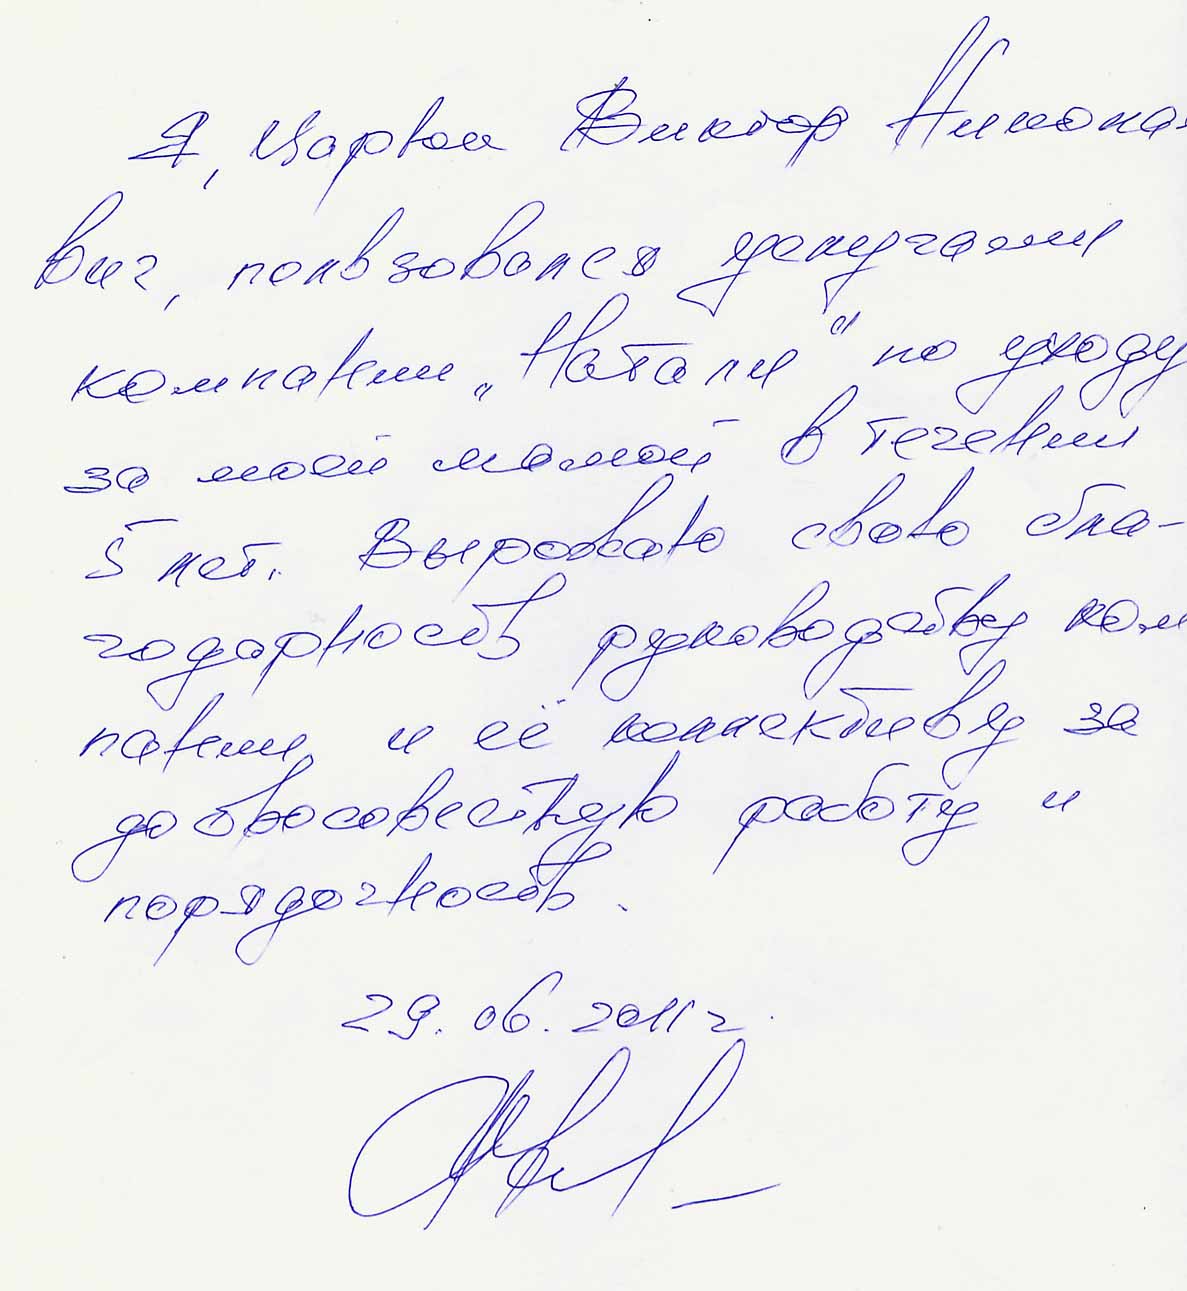 Я, Царвои Виктор Николае-
вич, пользовался услугами
компании „Натали" по уходу
за моей мамой в течении
5 лет. Выражаю свою бла-
годарность руководству ком
пании и её коллективу за
добросовестную работу и
порядочность.
29.06.2011г.